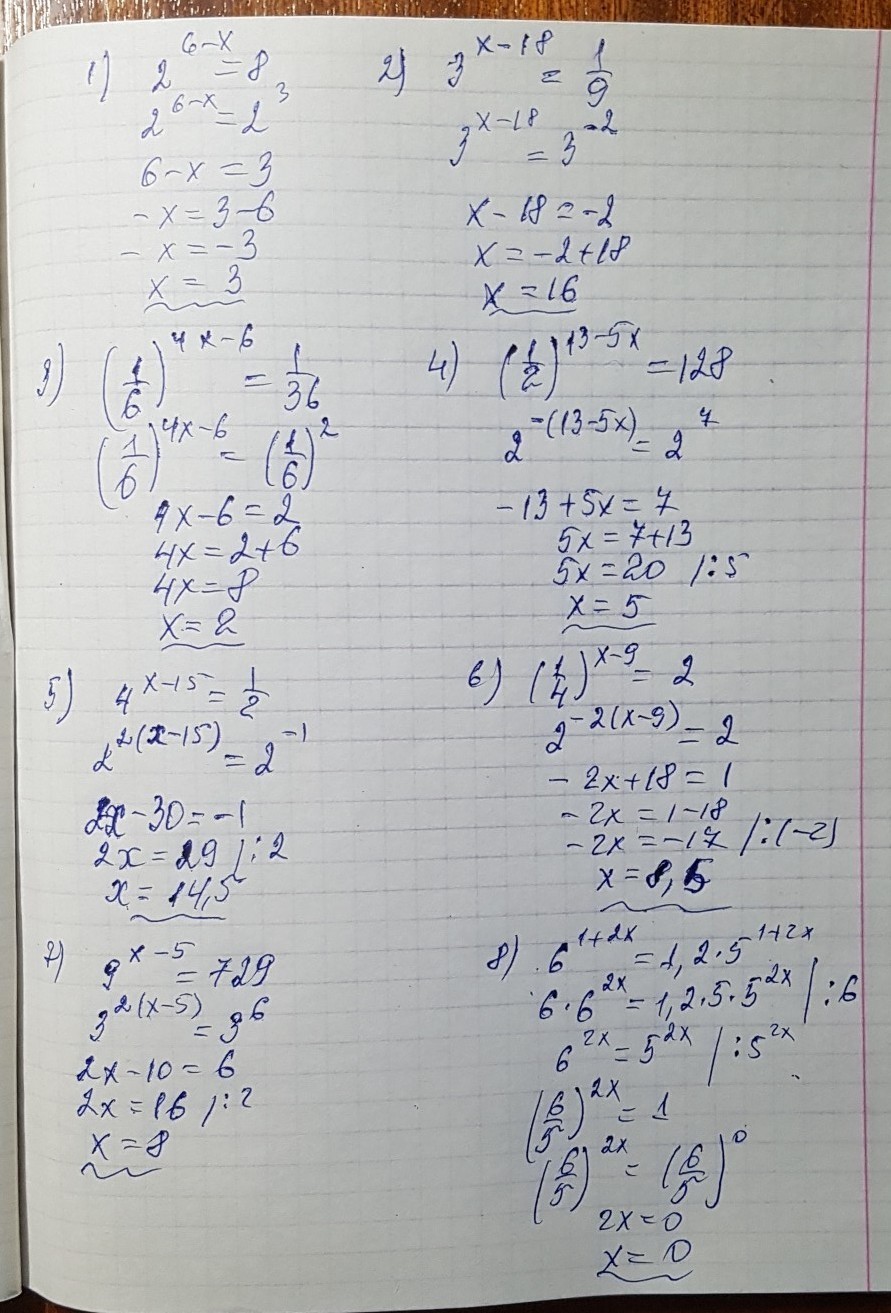 1) 2^(6-x) = 8
2^(6-x) = 2^3
6-x = 3
-x = 3-6
-x = -3
x = 3
2) 3^(x-18) = 1/9
3^(x-18) = 3^(-2)
x-18 = -2
x = -2+18
x = 16
3) (1/6)^(4x-6) = 1/36
(1/6)^(4x-6) = (1/6)^2
4x-6 = 2
4x = 2+6
4x = 8
x = 2
4) (1/2)^(13-5x) = 128
2^(-(13-5x)) = 2^7
-13+5x = 7
5x = 7+13
5x = 20 /:5
x = 5
5) 4^(x-15) = 1/2
2^(2(x-15)) = 2^(-1)
2x-30 = -1
2x = 29 /:2
x = 14,5
6) (1/4)^(x-9) = 2
2^(-2(x-9)) = 2
-2x+18 = 1
-2x = 1-18
-2x = -17 /:(-2)
x = 8,5
7) 9^(x-5) = 729
3^(2(x-5)) = 3^6
2x-10 = 6
2x = 16 /:2
x = 8
8) 6^(1+2x) = 1,2·5^(1+2x)
6·6^(2x) = 1,2·5·5^(2x) /:6
6^(2x) = 5^(2x) /:5^(2x)
(6/5)^(2x) = 1
(6/5)^(2x) = (6/5)^0
2x = 0
x = 0